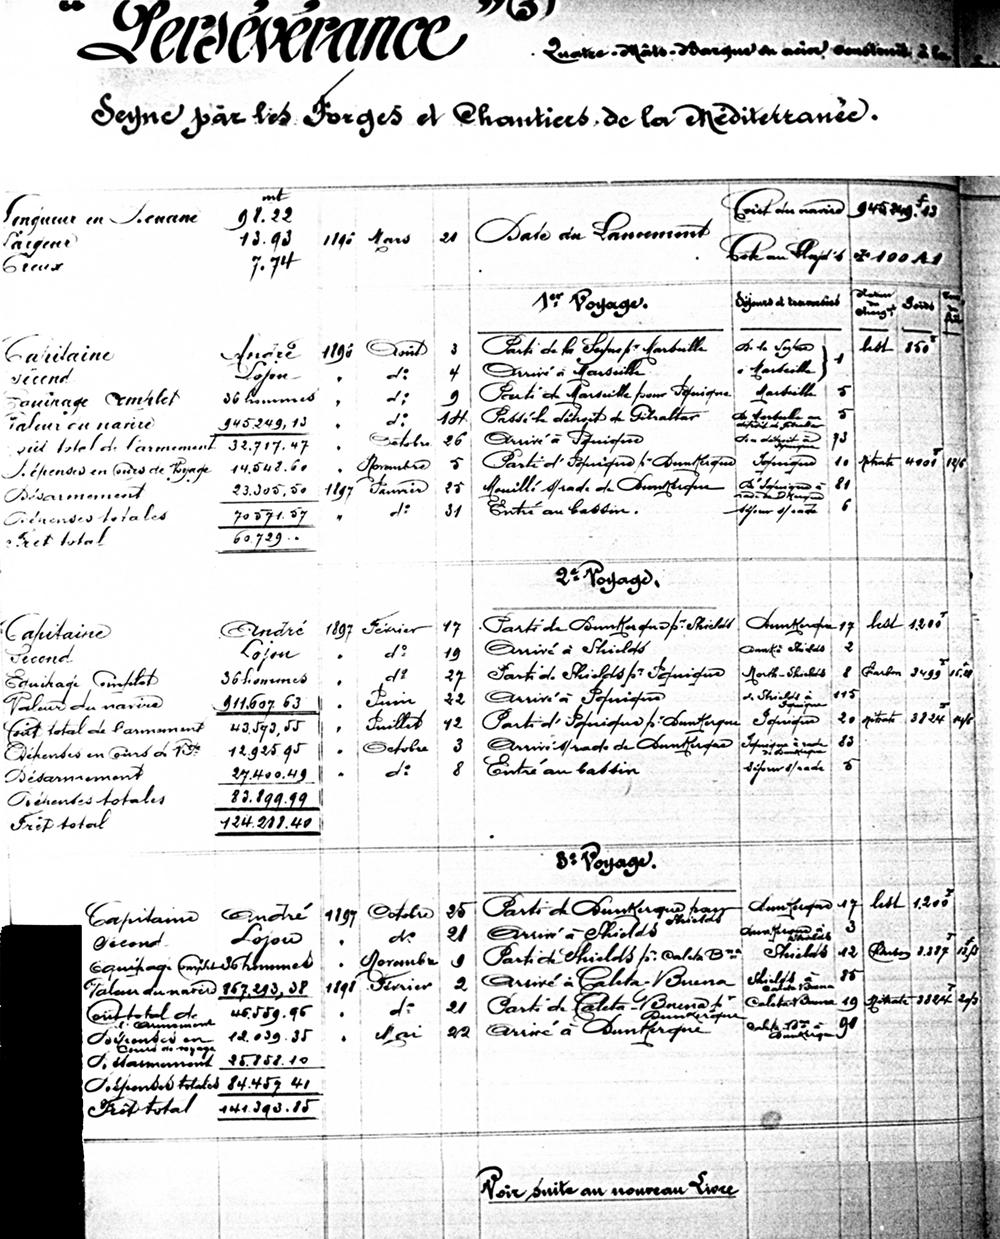 "Persévérance" (3) Quatre-Mâts-Barque en acier, construit à la
Seyne par les Forges et Chantiers de la Méditerranée.
Longueur en Carène mt 98.22
Largeur 13.93 1896 Mars 21 Date du Lancement Coût du navire 945.249.f13
Creux 7.74 Cote au 100 A1
1er Voyage. Séjours et traversées Poids
Capitaine André 1896 Août 3 Parti de la Seyne pr Marseille de la Seyne lest 850T
Second Lojou " do 4 Arrivé à Marseille à Marseille 1
Equipage Complet 36 hommes " do 9 Parti de Marseille pour Iquique Marseille 5
Valeur du navire 945.249,13 " do 14 Passé le détroit de Gibraltar de Marseille au détroit de Gibraltar 5
Coût total de l'armement 32.717,47 " Octobre 26 Arrivé à Iquique du détroit à Iquique 73
Dépenses en Cours de Voyage 14.548.60 " Novembre 5 Parti d'Iquique pr Dunkerque Iquique 10 Nitrate 4001T 12/6
Désarmement 23.305,50 1897 Février 25 Mouillé s/rade de Dunkerque de Iquique à rade de Dunkerque 81
Dépenses totales 70571.57 " do 31 Entré au bassin. séjour s/rade 6
Frêt total 60.729..
2e Voyage.
Capitaine André 1897 Février 17 Parti de Dunkerque pr Shields Dunkerque 17 lest 1.200T
Second Lojou " do 19 Arrivé à Shields Dunk à Shields 2
Equipage Complet 36 hommes " do 27 Parti de Shields pr Iquique North-Shields 8 Charbon 3499T
Valeur du navire 911.607,63 " Juin 22 Arrivé à Iquique de Shields à Iquique 115
Coût total de l'armement 43.573,55 " Juillet 12 Parti d'Iquique pr Dunkerque Iquique 20 Nitrate 3824T
Dépenses en Cours de 12.925 95 " Octobre 3 Arrivé s/rade de Dunkerque Iquique à rade de Dunkerque 83
Désarmement 27.400.49 " do 8 Entré au bassin séjour s/rade 5
Dépenses totales 83.899.99
Frêt total 124.288.40
3e Voyage.
Capitaine André 1897 Octobre 25 Parti de Dunkerque pour Shields Dunkerque 17 lest 1.200T
Second Lojou " do 21 Arrivé à Shields Dunkerque à Shields 3
Equipage Complet 36 hommes " Novembre 9 Parti de Shields pr Caleta Bna Shields 12 Charbon
Valeur du navire 867.293,38 1898 Février 2 Arrivé à Caleta-Buena Shields à Caleta Buena 85
Coût total de l'armement 46.559.96 " do 21 Parti de Caleta-Buena pr Dunkerque Caleta-Buena 19 Nitrate 3824T
Dépenses en Cours de voyage 12.039.35 " Mai 22 Arrivé à Dunkerque Caleta Bna à Dunkerque 90
Désarmement 25.858.10
Dépenses totales 84.457 41
Frêt total 141.393.85
Voir suite au nouveau Livre